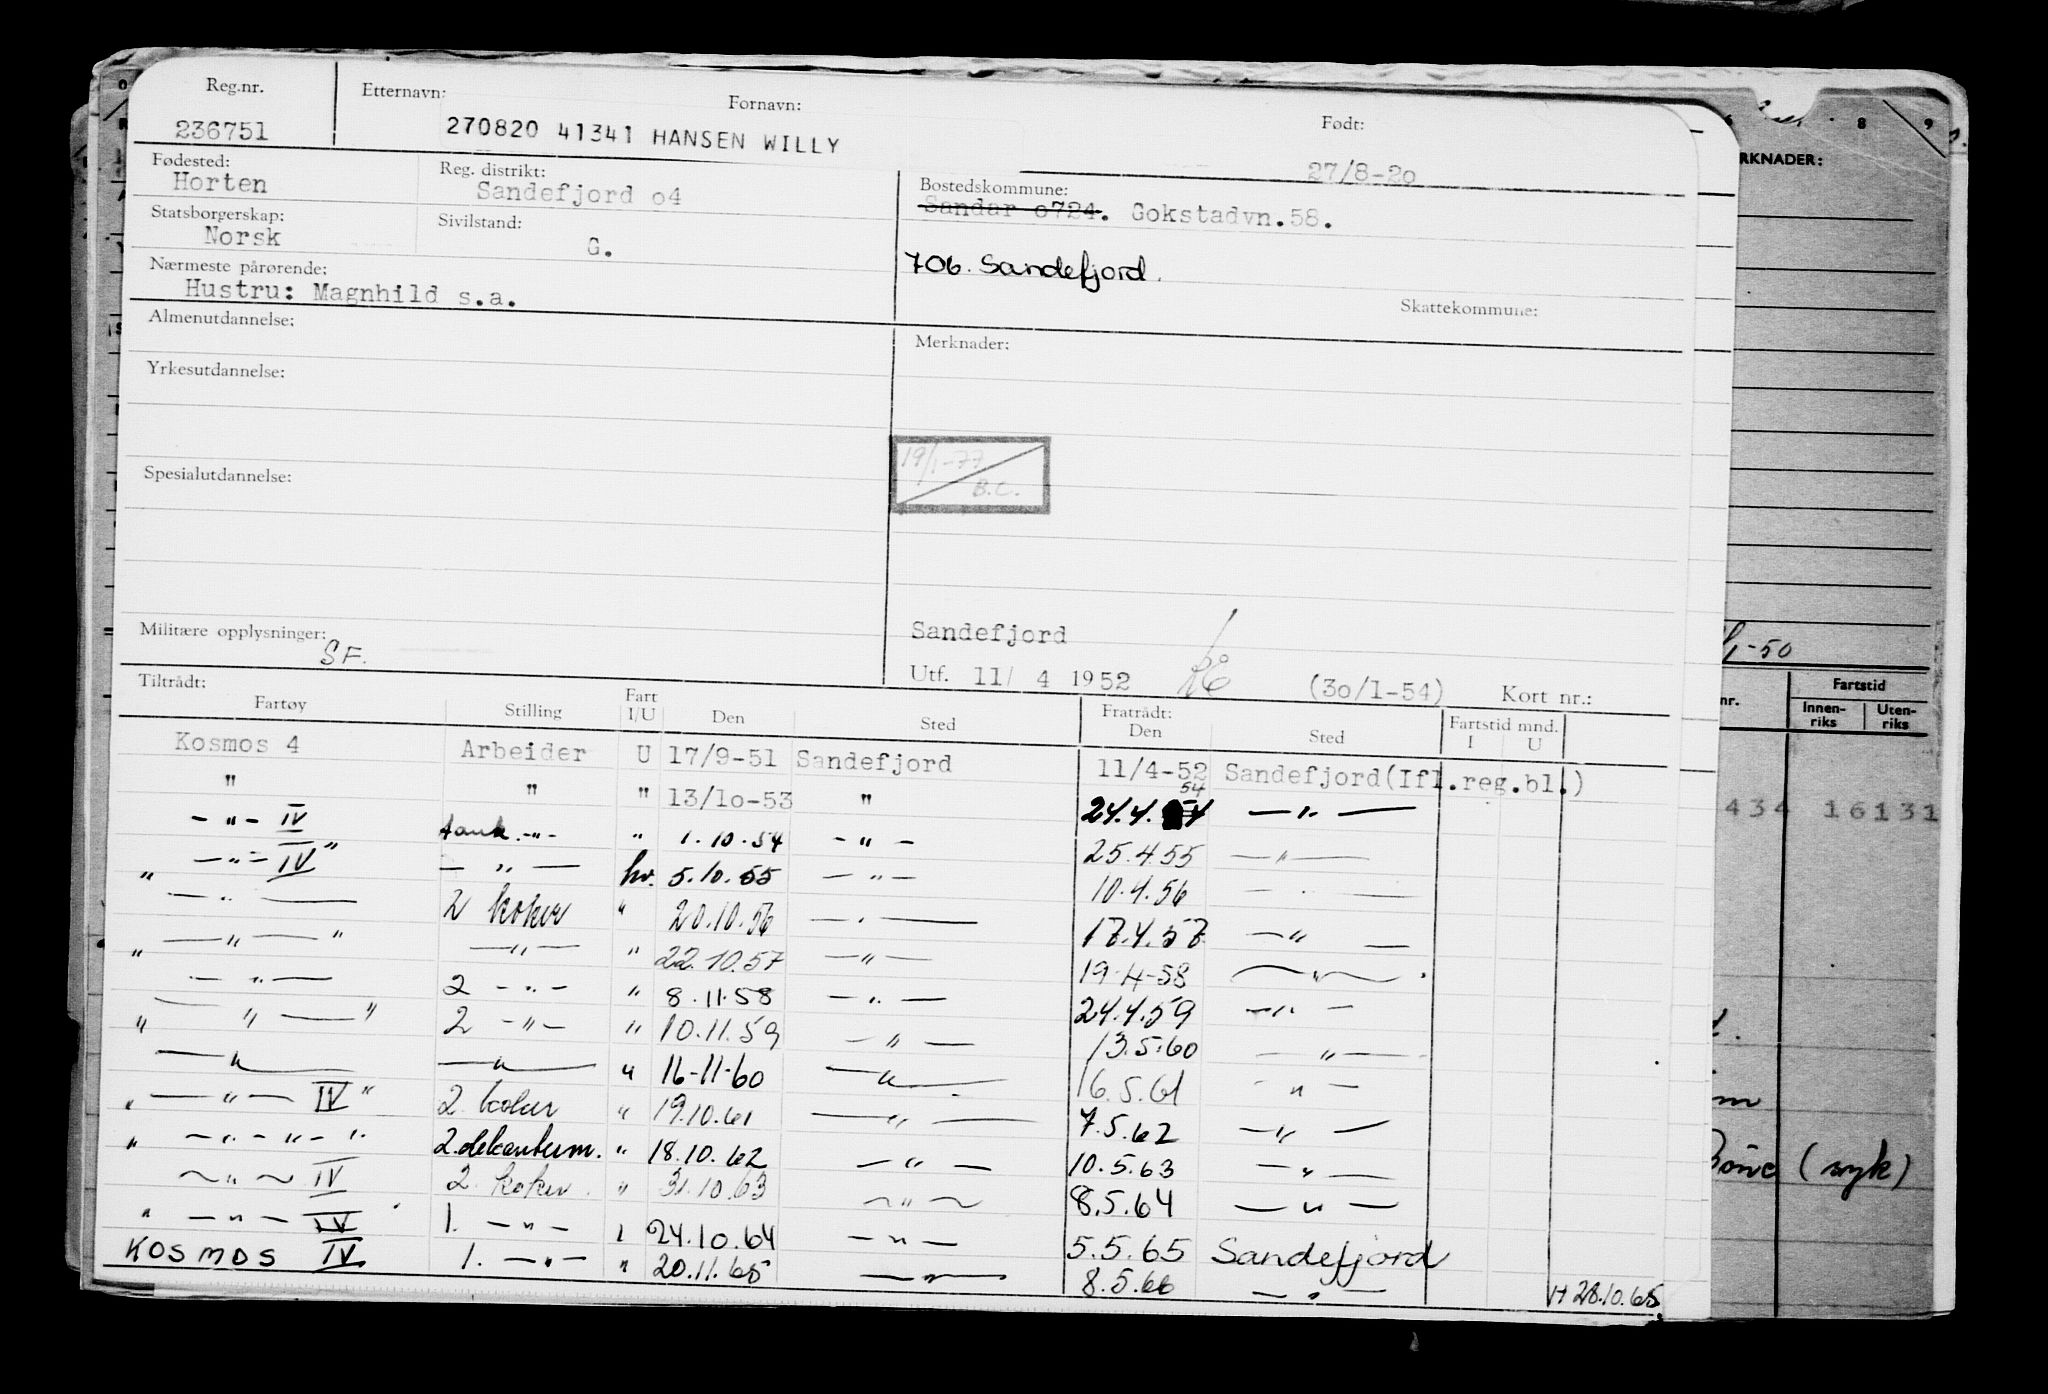 Reg.nr. Etternavn: Fornavn: Født:
236751 270820 41341 HANSEN WILLY 27/8-2o
Fødested: Reg. distrikt: Bostedskommune:
Horten Sandefjord o4 Sandar o724. Gokstadvn.58.
Statsborgerskap: Sivilstand:
Norsk G. 706. Sandefjord.
Nærmeste pårørende:
Hustru: Magnhild s.a. Skattekommune:
Almenutdannelse: Merknader:
Yrkesutdannelse:
19/1-77
B.C.
Spesialutdannelse:
Militære opplysninger: Sandefjord
SF.
Utf. 11/ 4 1952 (3o/1-54) Kort nr.:
Tiltrådt: Fratrådt:
Fartøy Stilling Fart I/U Den Sted Den Sted Fartstid mnd. I U
Kosmos 4 Arbeider U 17/9-51 Sandefjord 11/4-52 Sandefjord(Ifl.reg.bl.)
" " " 13/1o-53 " 24.4.54 54 — " —
- " - IV tank. -"- " 1.10.54 - " - 25.4.55 — " —
" - " - IV " — " — hv. 5.10.55 — " — 10.4.56 — " —
— " — 2 koker " 20.10.56 — " — 17.4.57 — " —
" — " — " — " — " 22.10.57 — " — 19-4-58 — " —
— " — 2 - " - " 8.11.58 — " — 24.4.59 — " —
" — " — " 2 - " - " 10.11.59 — " — 13.5.60 — " —
— " — — " — " 16-11-60 — " — 16.5.61 - " -
" — " — IV " 2. koker " 19.10.61 — " — 7.5.62 — " —
" - " - " - " 2. dekantum. " 18.10.62 — " — 10.5.63 — " —
~ " ~ IV 2. koker. " 31.10.63 ~ " ~ 8.5.64 — " —
" — " — IV 1. - " - " 24.10.64 - " - 5.5.65 Sandefjord
KOSMOS IV 1. - " - " 20.11.65 — " — 8.5.66 — " — H 28.10.65.
8 9
RKNADER:
/1-50
nr. Fartstid
Innen-riks Uten-riks
434 16131
(syk)